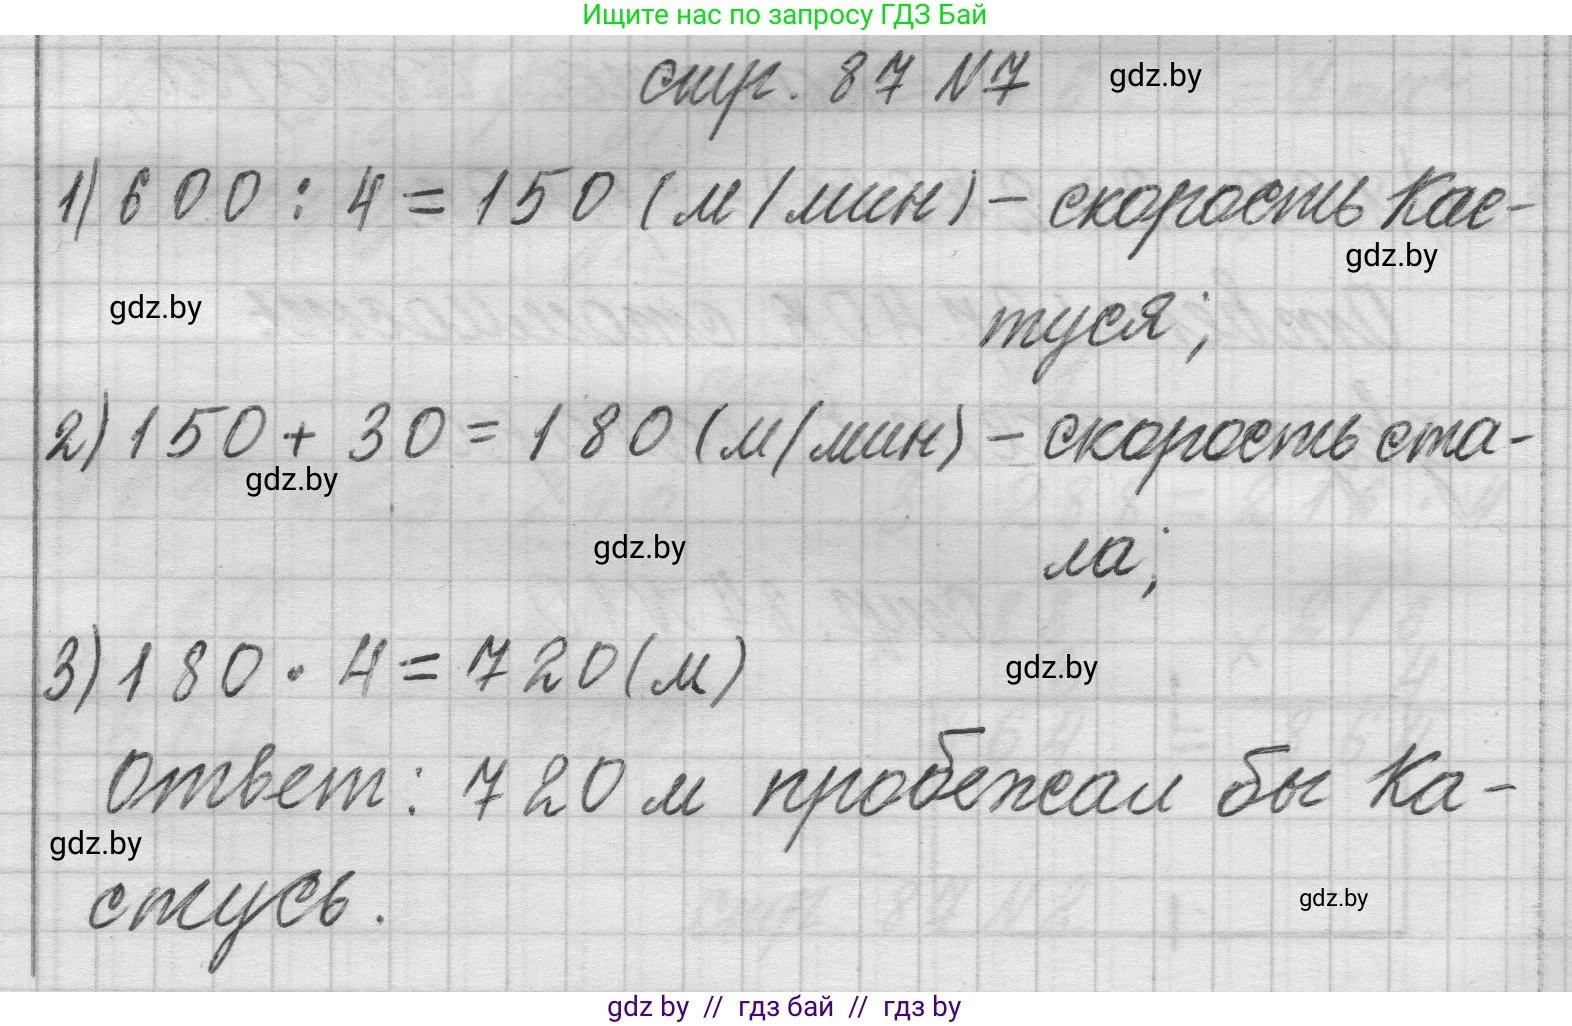 Ищите нас по запросу ГДЗ Бай
стр. 87 №7
gdz.by
1) 600 : 4 = 150 (м/мин) - скорость Кас-
gdz.by
gdz.by
туся;
2) 150 + 30 = 180 (м/мин) - скорость ста-
gdz.by
gdz.by
ла;
3) 180 · 4 = 720 (м)
gdz.by
Ответ: 720 м пробежал бы Ка-
gdz.by
стусь.
gdz.by
gdz by // гдз бай // гдз by